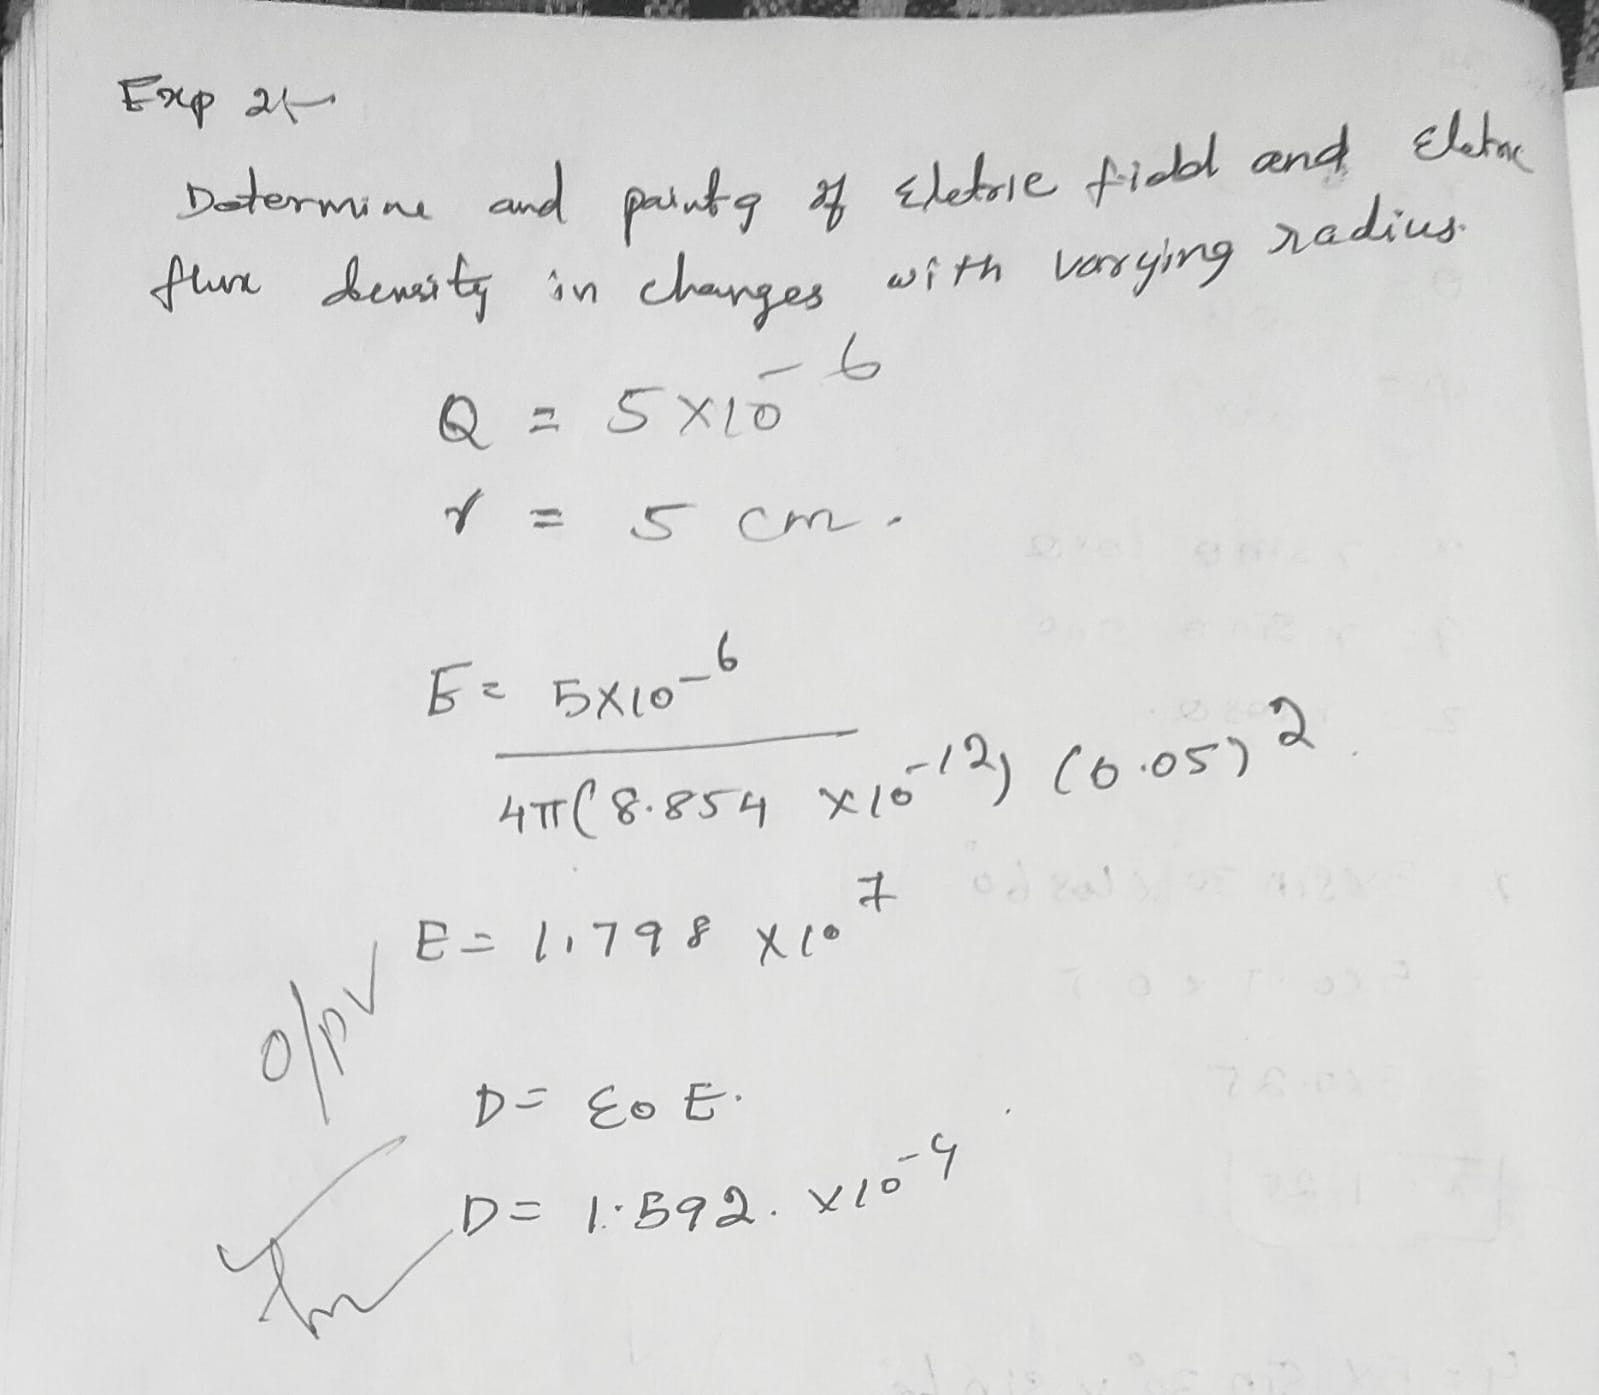 Exp 2:-
Determine and paintg of Eletric field and Eletric
flux density in changes with varying radius.
Q = 5×10^-6
r = 5 cm.
E = 5×10^-6
4π(8.854 ×10^-12) (0.05)^2.
E = 1.798 ×10^7
o/p ✓
D = ε0 E.
D = 1.592. ×10^-4